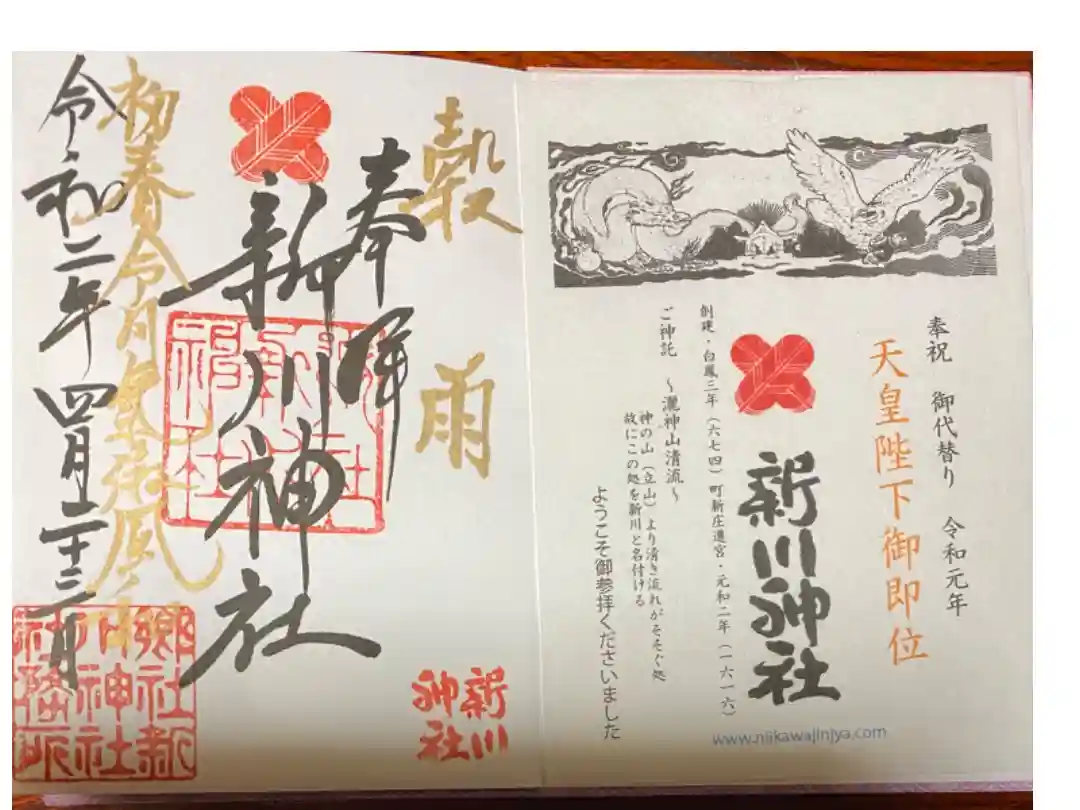 奉祝　御代替り　令和元年
天皇陛下御即位
新川神社
創建・白鳳三年（六七四）町新庄遷宮・元和二年（一六一六）
ご神託　～瀧神山清流～
神の山（立山）より清き流れがそそぐ処
故にこの処を新川と名付ける
ようこそ御参拝くださいました
www.niikawajinjya.com
穀雨
新川
神社
奉拝
新川神社
初春令月
令和二年四月
郷社新
川神社
社務所